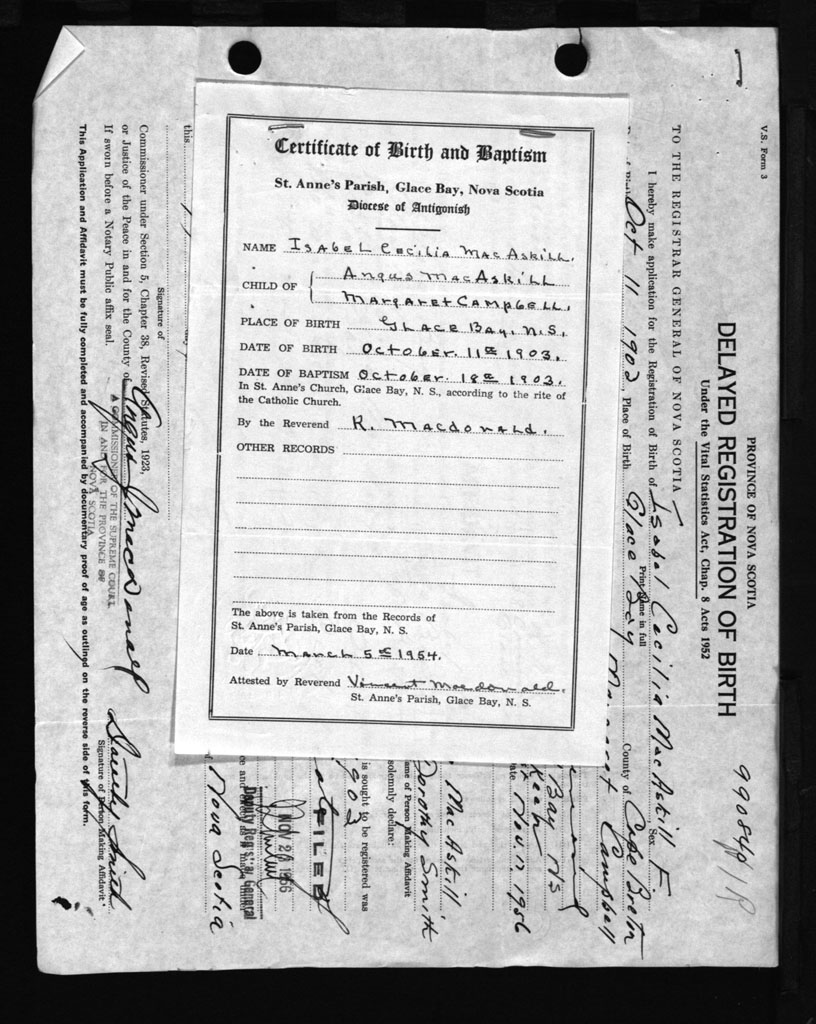 Certificate of Birth and Baptism
St. Anne's Parish, Glace Bay, Nova Scotia
Diocese of Antigonish
NAME Isabel Cecilia MacAskill.
CHILD OF Angus MacAskill
Margaret Campbell.
PLACE OF BIRTH Glace Bay, N.S.
DATE OF BIRTH October. 11th 1903.
DATE OF BAPTISM October. 18th 1903.
In St. Anne's Church, Glace Bay, N. S., according to the rite of
the Catholic Church.
By the Reverend R. Macdonald.
OTHER RECORDS
The above is taken from the Records of
St. Anne's Parish, Glace Bay, N. S.
Date March 5th 1954.
Attested by Reverend Vincent Macdonald.
St. Anne's Parish, Glace Bay, N. S.
V.S. Form 3
PROVINCE OF NOVA SCOTIA
DELAYED REGISTRATION OF BIRTH
Under the Vital Statistics Act, Chap. 8 Acts 1952
TO THE REGISTRAR GENERAL OF NOVA SCOTIA
I hereby make application for the Registration of Birth of Isabel Cecilia MacAskill Sex F
Print Name in full
Oct 11 1902, Place of Birth Glace Bay County of Cape Breton
Margaret Campbell
Bay NS
Keen
Nov. 17. 1956
MacAskill
Dorothy Smith
ame of Person Making Affidavit
solemnly declare:
is sought to be registered was
1902
FILED
NOV 20 1956
Deputy Registrar General
Nova Scotia
this
Signature of
Commissioner under Section 5, Chapter 38, Revised Statutes, 1923,
or Justice of the Peace in and for the County of
If sworn before a Notary Public affix seal.
Angus J Macdonald
A COMMISSIONER OF THE SUPREME COURT
IN AND FOR THE PROVINCE OF
NOVA SCOTIA
Dorothy Smith
Signature of Person Making Affidavit
This Application and Affidavit must be fully completed and accompanied by documentary proof of age as outlined on the reverse side of this form.